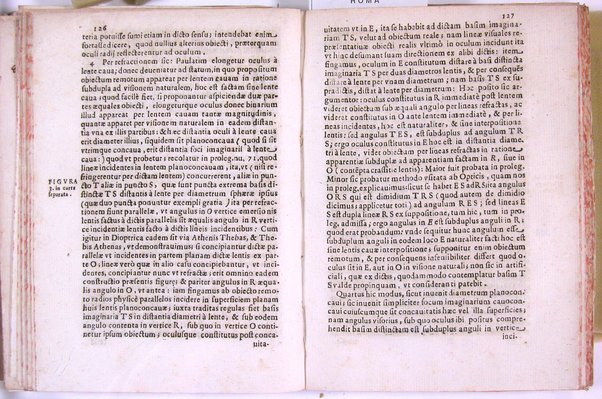 ROMA
126
teria potuisse sumi etiam in dicto sensu; intendebat enim
fortasse dicere, quod nullus alterius obiecti, præterquam
oculi radij reflecterentur ad oculum.
4 Per refractionem sic: Paulatim elongetur oculus à
lente caua; donec deueniatur ad statum, in quo propositum
obiectum remotum appareat per lentem cauam in ratione
subdupla ad visionem naturalem, hoc est factam sine lente
caua; quod facile fiet, si proponantur aspiciendæ duæ par-
tes æquales obiecti, elongeturque oculus donec binarium
illud appareat per lentem cauam tantæ magnitudinis,
quantæ apparet per visionem naturalem in eadem distan-
tia vna ex illis partibus: & hæc distantia oculi à lente caua
erit diameter illius, siquidem sit planoconcaua (quod si sit
vtrimque concaua, erit distantia foci imaginarij à lente
caua:) quod vt probetur; recolatur in proleg. nu. 71, quod
lineæ incidentes in lentem planoconcauam, ita, vt (nisi re-
fringerentur per dictam lentem) concurrerent, aliæ in pun-
cto T aliæ in puncto S, quæ sunt puncta extrema basis di-
stinctæ TS distantis à lente per diametrum sphæræ ipsius
(quæ duo puncta ponuntur exempli gratia) ita per refra-
ctionem fiunt parallelæ, vt angulus in O vertice emersionis
lentis factus à dictis parallelis sit æqualis angulo in R verti-
ce incidentiæ lentis facto à dictis lineis incidentibus: Cum
igitur in Dioptrica eadem sit via Athenis Thebas, & The-
bis Athenas; vt demonstrauimus si concipiantur dictæ pa-
rallelæ vt incidentes in planam partem dictæ lentis ex par-
te O; lineæ verò quæ in alio casu concipiebantur, vt inci-
dentes, concipiantur nunc vt refractæ: erit omnino eadem
constructio præsentis figuræ; & pariter angulus in R æqua-
lis angulo in O, vt antea: iam fingamus ab obiecto remo-
to radios physicè parallelos incidere in superficiem planam
huius lentis planoconcauæ; iuxta tradita regulas fiet basis
imaginaria TS in distantia diametri à lente, & sub eodem
angulo contenta in vertice R, sub quo in vertice O conti-
netur ipsum obiectum; oculusque constitutus post conca-
uita-
FIGVRA
3. in carta
separata.
127
uitatem vt in E, ita se habebit ad dictam basim imagina-
riam TS, velut ad obiectum reale; nam lineæ visuales re-
præsentatiuæ obiecti realis vltimò in oculum incidunt ita
vt huc desumant suam directionem ex alibi dictis: itaque
fingamus, oculum in E constitutum distare à basi distincta
imaginaria TS per duas diametros lentis, & per consequens
distare à lente per vnam diametrum; nam basis TS ex su-
pradictis, distat à lente per diametrum: Hoc posito sic ar-
gumentor: oculus constitutus in R immediatè post lentem
videret obiectum sub æquali angulo per lineas refractas, ac
videret constitutus in O ante lentem immediatè, & per li-
neas incidentes, hoc est naturaliter, & sine interpositione
lentis: sed angulus TES, est subduplus ad angulum TR
S; ergo oculus constitutus in E hoc est in distantia diame-
tri à lente, videbit per lineas refractas in ratione
apparentiæ subdupla ad apparentiam factam in R, siue in
O (concepta crassitie lentis): Maior fuit probata in proleg.
Minor sic probatur methodo visitata ab Opticis, quam non
in proleg. explicauimus; sicut se habet ES ad RS ita angulus
ORS qui est dimidium TRS (quod autem de dimidio
dicimus; applicetur toti) ad angulum RES; sed linea E
S est dupla lineæ RS ex suppositione, tum hic, tum in pro-
leg. admissa; ergo angulus in E est subduplus anguli in R:
quod erat probandum: vnde sequitur hunc angulum esse
subduplum anguli in eodem loco E naturaliter facti hoc est
sine lentis cauæ interpositione; supponitur enim obiectum
remotum, & per consequens insensibiliter differt quod o-
culus sit in E, aut in O in visione naturali; non sic in artifi-
ciali, quæ ex dictis, quodammodo contemplatur basim T
S valde propinquam, vt consideranti patebit.
Quartus hic modus, sicut inuenit diametrum planocon-
cauæ; sic inuenit simpliciter focum imaginarium cauocon-
cauæ cuiuscumque sit concauitatis hæc vel illa superficies;
nam angulus visorius, sub quo oculus ibi positus compre-
hendit basim distinctam est subduplus anguli in vertice
inci-